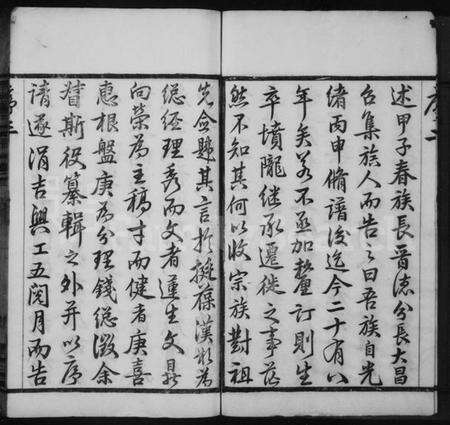 序二
述甲子春族長晉德分長大昌
召集族人而告之曰吾族自光
緒丙申脩譜後迄今二十有八
年矣若不亟加釐訂則生
卒墳隴繼承遷徙之事茫
然不知其何以收宗族對祖
先僉韙其言於擬葆漢彩為
總經理秀而文者蓮生文昇
向榮為主稿才而健者庚喜
惠根盤庚為分理錢總徵余
督斯役纂輯之外并以序
請遂涓吉興工五閱月而告
序三